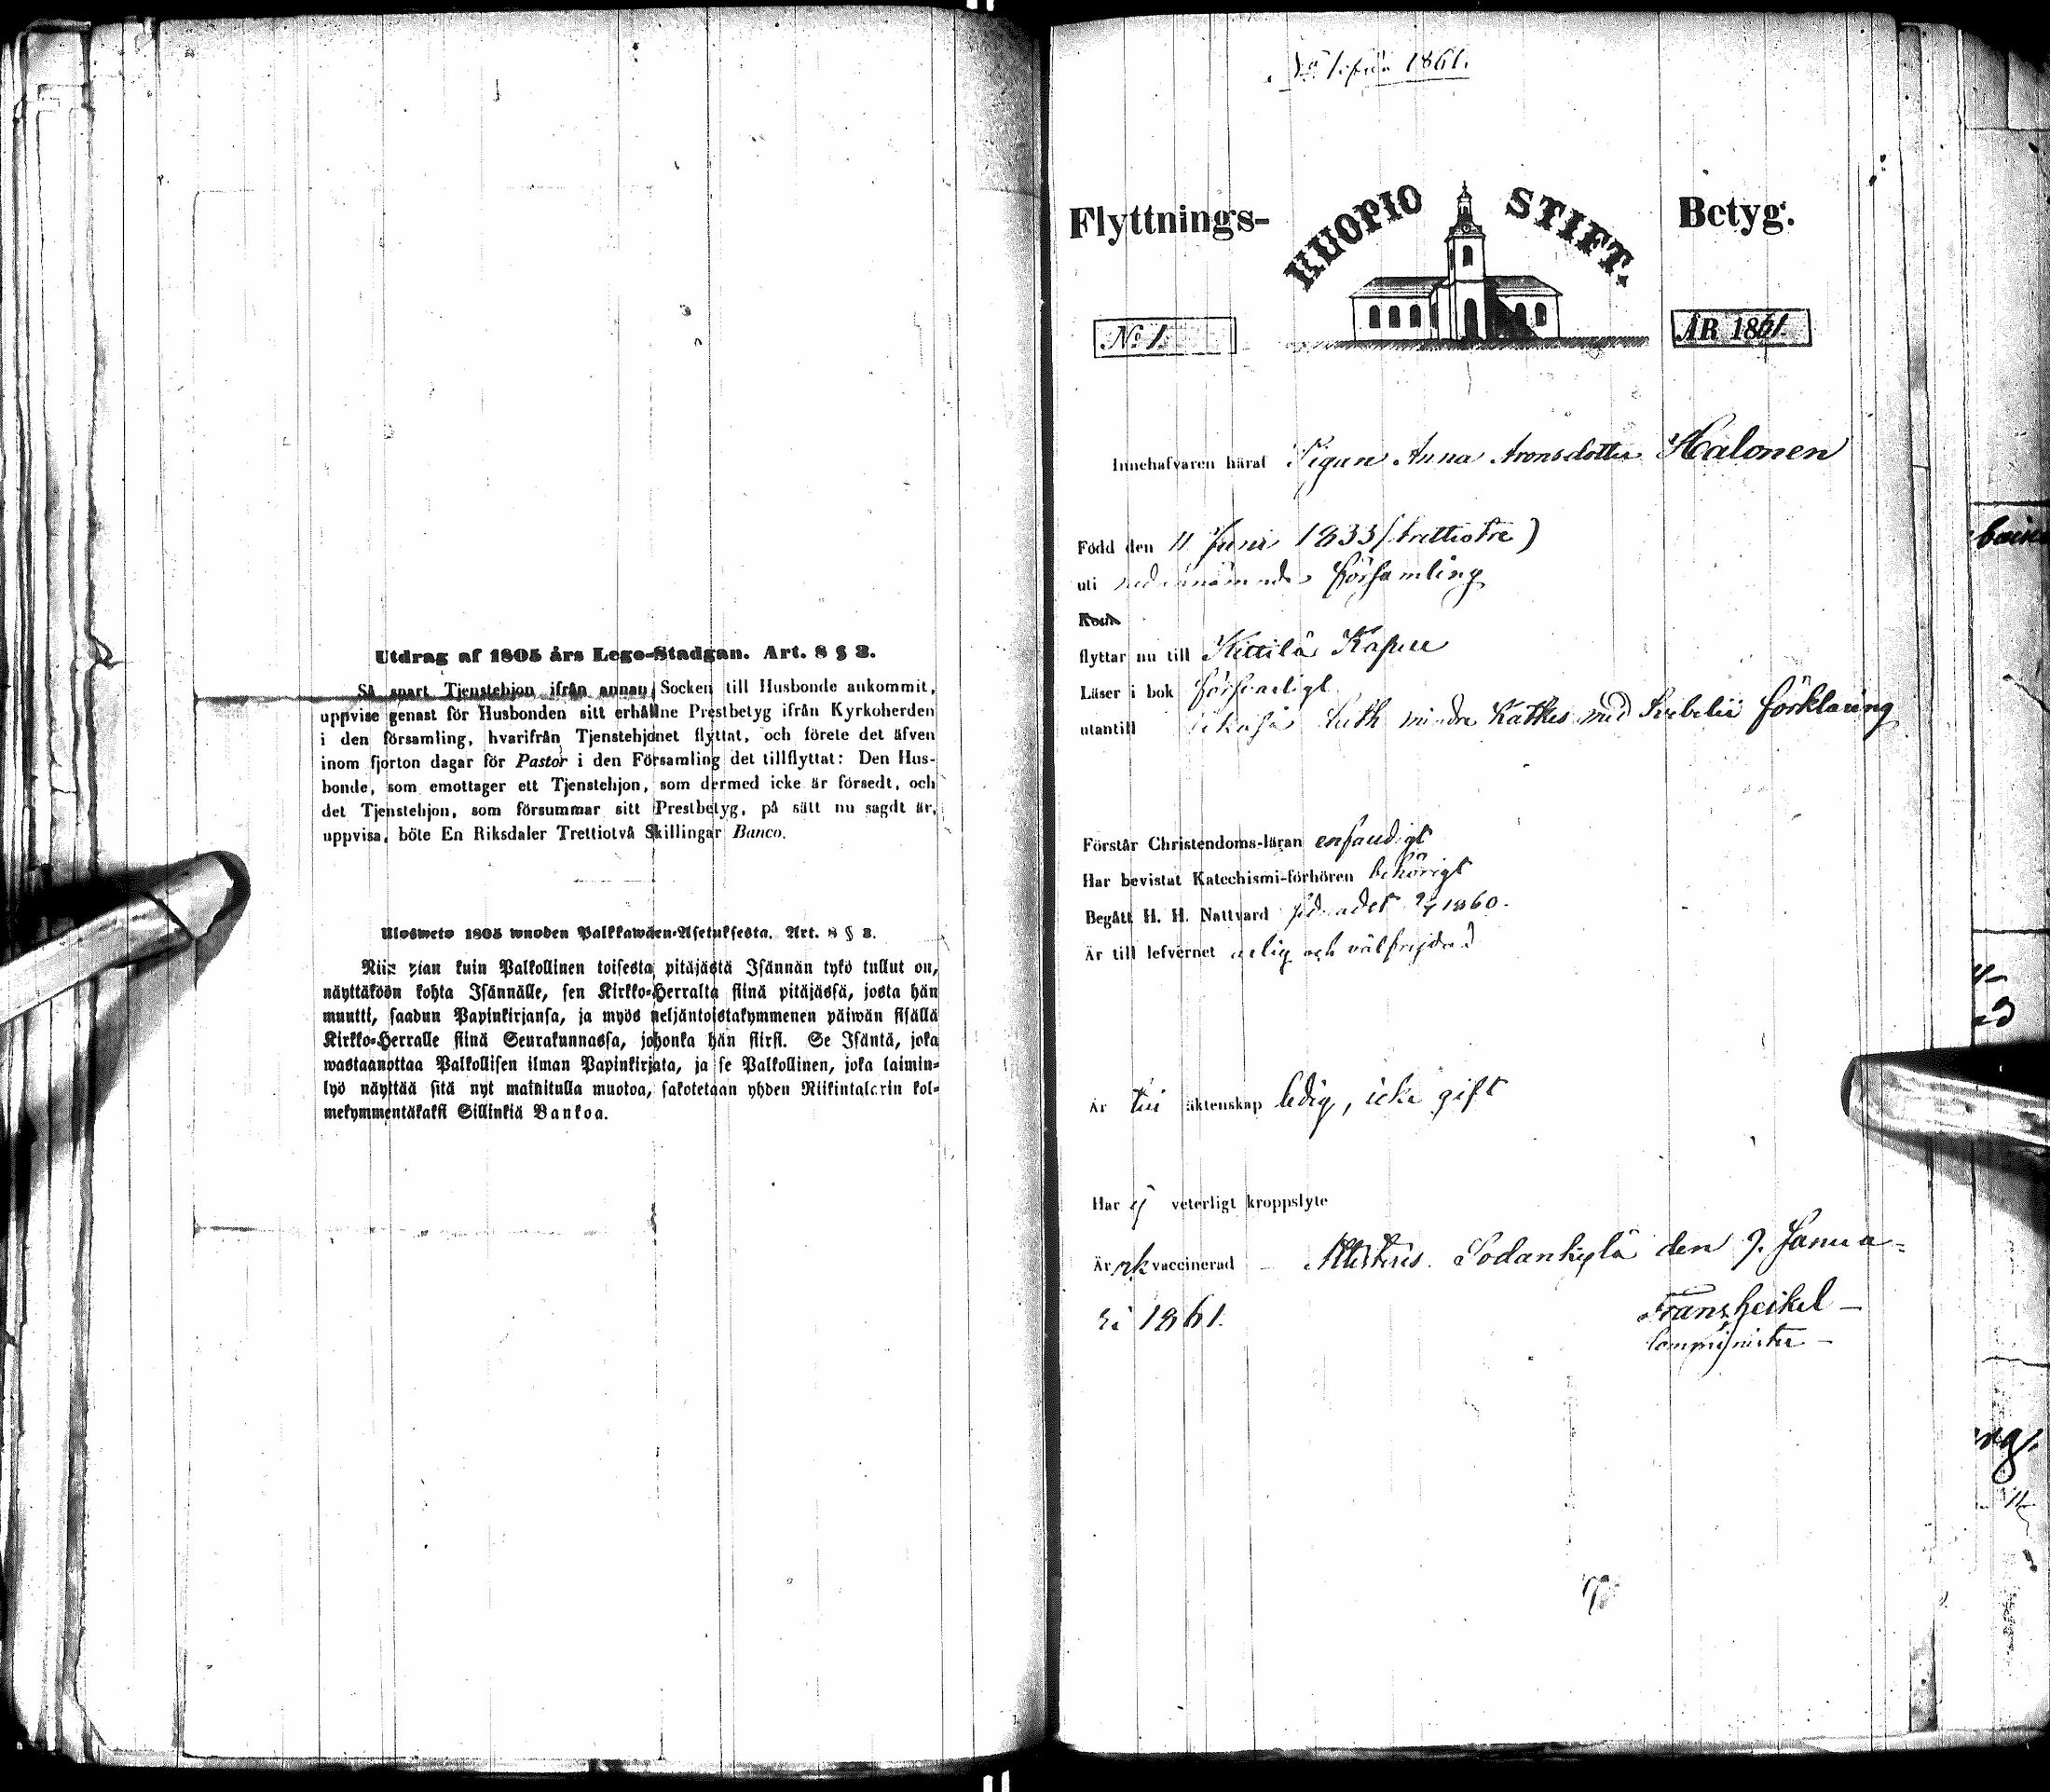 Utdrag af 1805 års Lego-Stadgan. Art. 8 § 3.
Så snart Tjenstehjon ifrån annan Socken till Husbonde ankommit,
uppvise genast för Husbonden sitt erhållne Prestbetyg ifrån Kyrkoherden
i den församling, hvarifrån Tjenstehjonet flyttat, och förete det äfven
inom fjorton dagar för Pastor i den Församling det tillflyttat: Den Hus-
bonde, som emottager ett Tjenstehjon, som dermed icke är försedt, och
det Tjenstehjon, som försummar sitt Prestbetyg, på sätt nu sagdt är,
uppvisa, böte En Riksdaler Trettiotvå Skillingar Banco.
Ulosweto 1805 wuoden Palkkawäen-Asetuksesta. Art. 8 § 3.
Niin pian kuin Palkollinen toisesta pitäjästä Isännän tykö tullut on,
näyttäköön kohta Isännälle, sen Kirkko-Herralta siinä pitäjässä, josta hän
muutti, saadun Papinkirjansa, ja myös neljäntoistakymmenen päiwän sisällä
Kirkko-Herralle siinä Seurakunnassa, johonka hän siirsi. Se Isäntä, joka
wastaanottaa Palkollisen ilman Papinkirjata, ja se Palkollinen, joka laimin-
lyö näyttää sitä nyt mainitulla muotoa, sakotetaan yhden Riikintalarin kol-
mekymmentäkaksi Sillinkiä Bankoa.
No 1 för 1861.
Flyttnings- KUOPIO STIFT. Betyg.
No 1. ÅR 1861.
Innehafvaren häraf Pigan Anna Aronsdotter Halonen
Född den 11 Juni 1833 (trettiotre)
uti nedannämnde församling
flyttar nu till Kittilä Kapell
Läser i bok försvarligt
utantill Luth mindre Katkes med Svebelii förklaring
Förstår Christendoms-läran enfaldigt
Har bevistat Katechismi-förhören behörigt
Begått H. H. Nattvard 1860.
Är till lefvernet ärlig och välfrejdad
Är till äktenskap ledig, icke gift
Har ej veterligt kroppslyte
Är ok vaccinerad – Attesteras. Sodankylä den 9. Janua-
ri 1861. Frans Heikel –
Comminister –